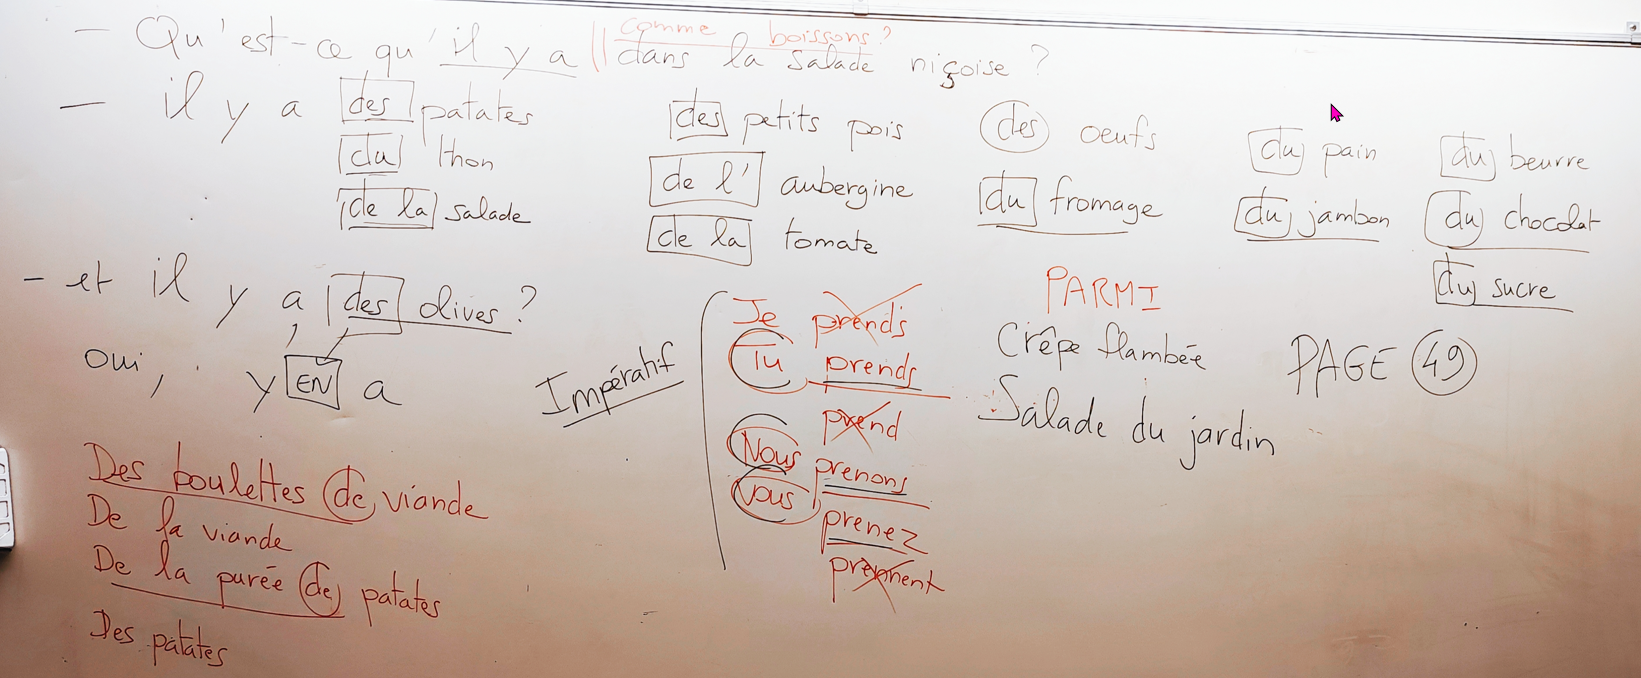 comme boissons?
- Qu'est-ce qu'il y a || dans la salade niçoise ?
- il y a des patates
du thon
de la salade
des petits pois
de l' aubergine
de la tomate
des oeufs
du fromage
du pain
du jambon
du beurre
du chocolat
du sucre
- et il y a des olives ?
oui, y EN a
Impératif
Je prends
Tu prends
prend
Nous prenons
Vous prenez
prennent
PARMI
Crêpe flambée
Salade du jardin
PAGE 49
Des boulettes de viande
De la viande
De la purée de patates
Des patates